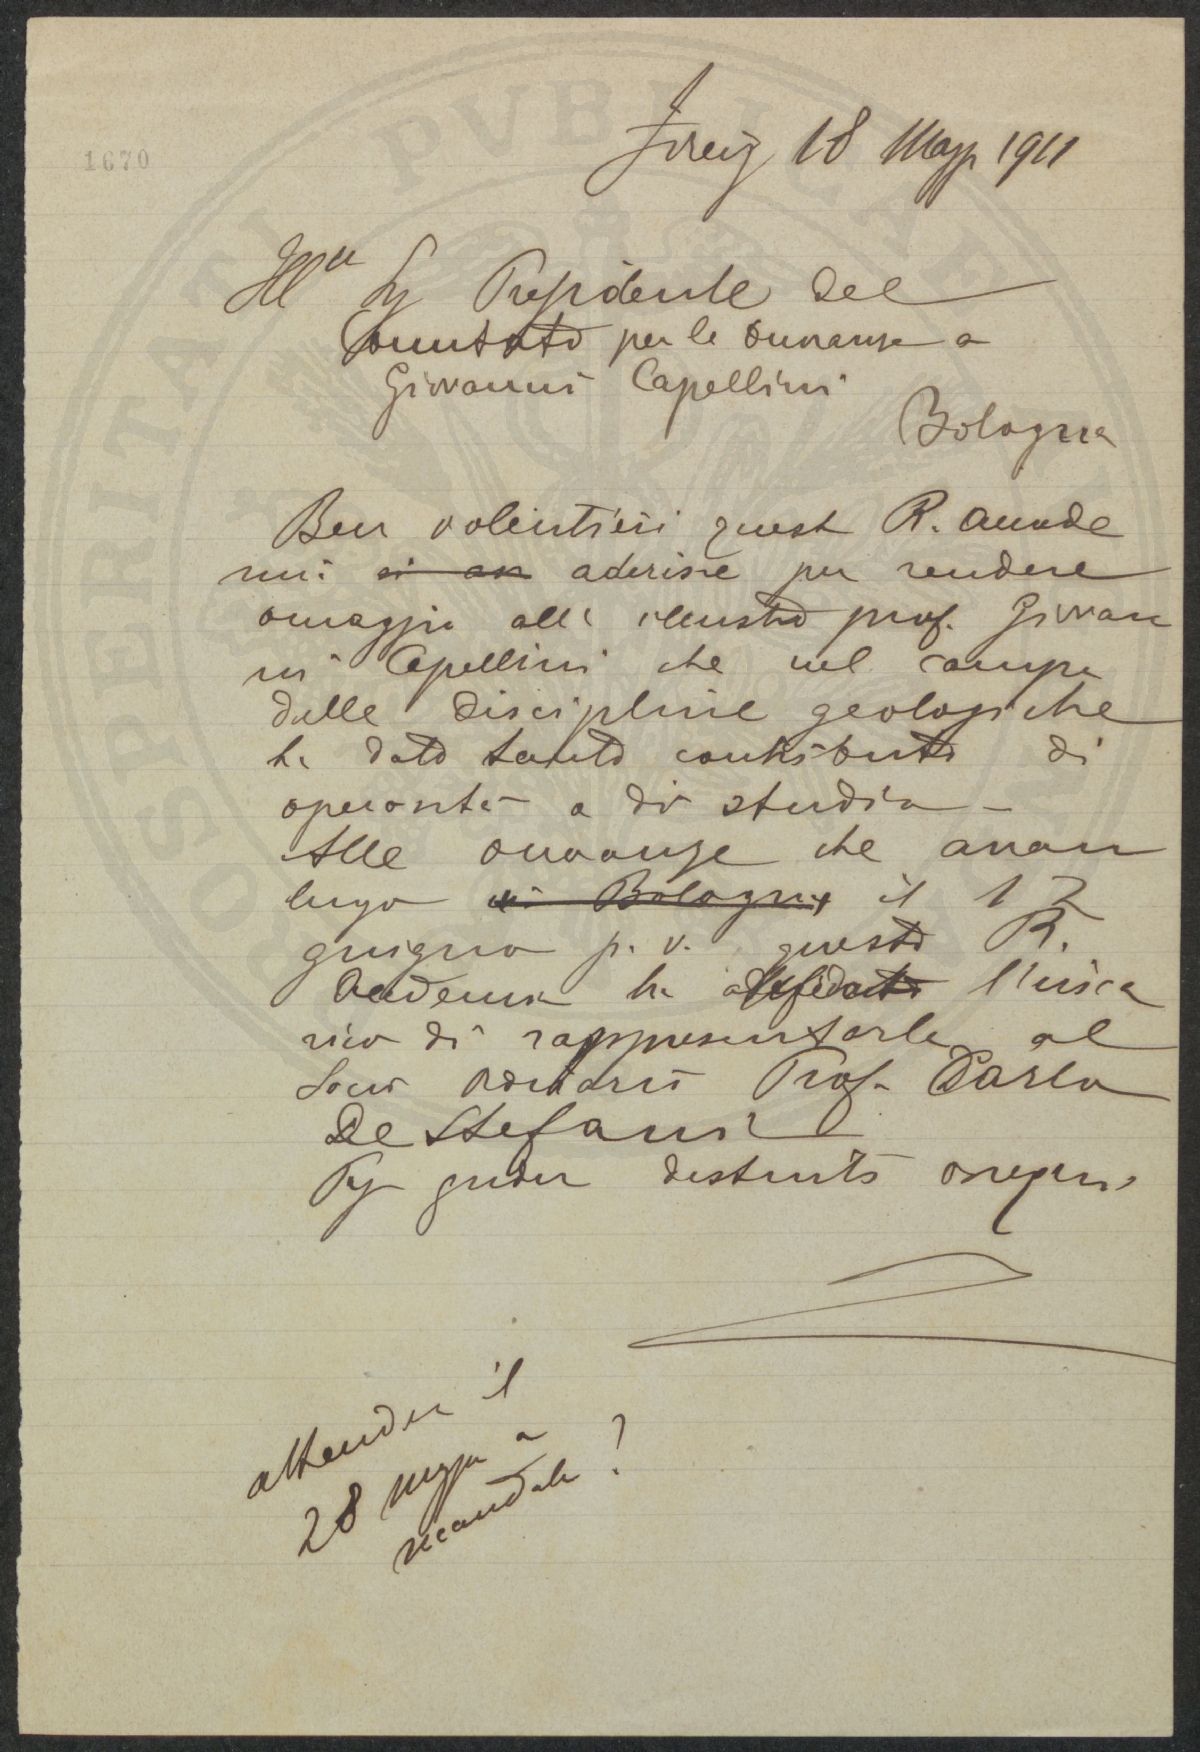 1670
Firenze 18 Magg 1911
Ill.mo Sg Presidente del
Comitato per le onoranze a
Giovanni Capellini
Bologna
Ben volentieri questa R. Accade
mia si as aderisce per rendere
omaggio all' illustre prof. Giovan
ni Capellini che nel campo
delle discipline geologiche
ha dato tanto contributo di
operosità e di studio –
Alle onoranze che avran
luogo in Bologna il 12
giugno p. v. questa R.
Accademia ha affidato l'inca
rico di rappresentarla al
Socio ordinario Prof. Carlo
De Stefani
distinto ossequio
attender il
28 maggio a
mandarla?
SPERITATI PVBLICAE